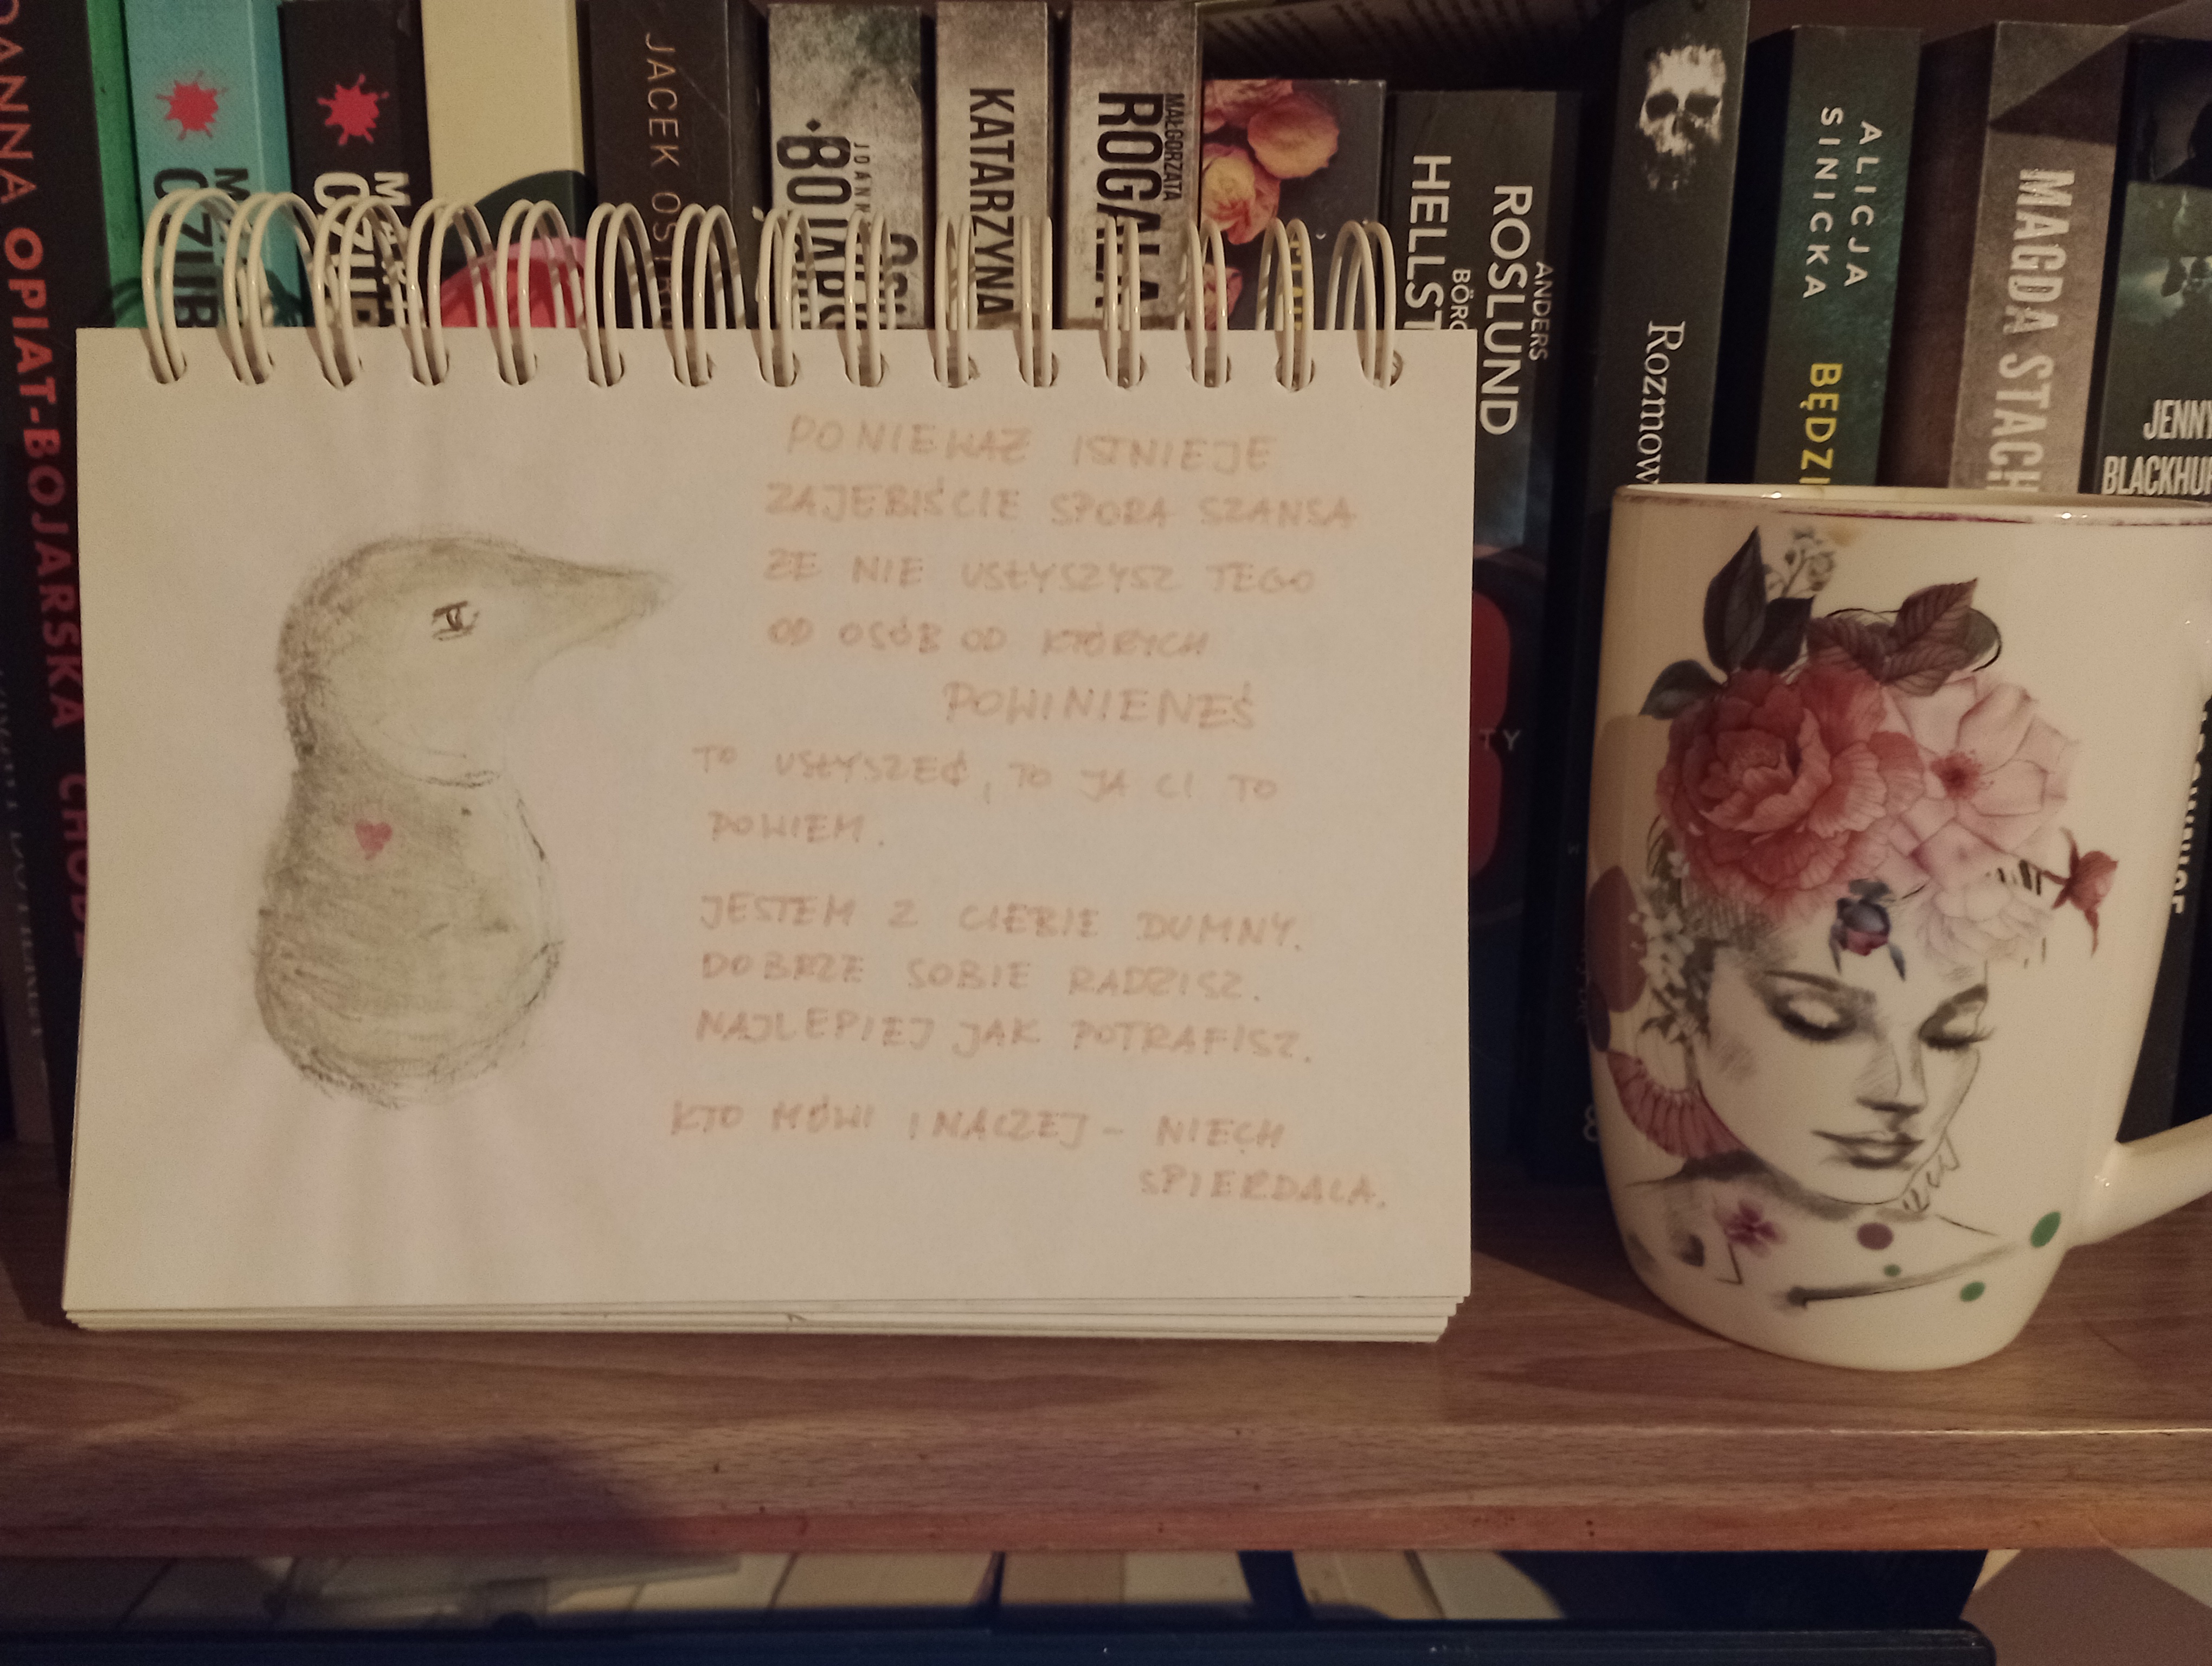 JOANNA OPIAT-BOJARSKA
JACEK
KATARZYNA
MAŁGORZATA
ROGALA
ANDERS
ROSLUND
HELLST
Rozmow
ALICJA
SINICKA
BĘDZI
MAGDA STACH
JENNY
BLACKHU
PONIEWAŻ ISTNIEJE
ZAJEBIŚCIE SPORA SZANSA
ŻE NIE USŁYSZYSZ TEGO
OD OSÓB OD KTÓRYCH
POWINIENEŚ
TO USŁYSZEĆ, TO JA CI TO
POWIEM.
JESTEM Z CIEBIE DUMNY.
DOBRZE SOBIE RADZISZ.
NAJLEPIEJ JAK POTRAFISZ.
KTO MÓWI INACZEJ - NIECH
SPIERDALA.